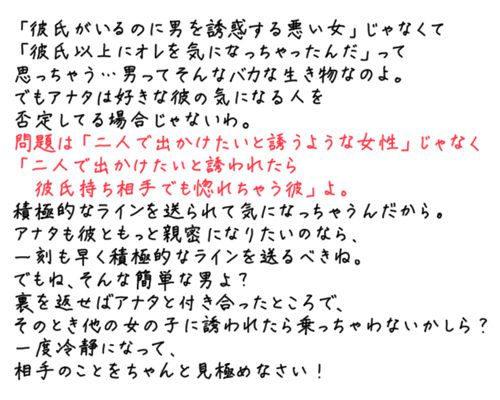 「彼氏がいるのに男を誘惑する悪い女」じゃなくて
「彼氏以上にオレを気になっちゃったんだ」って
思っちゃう…男ってそんなバカな生き物なのよ。
でもアナタは好きな彼の気になる人を
否定してる場合じゃないわ。
問題は「二人で出かけたいと誘うような女性」じゃなく
「二人で出かけたいと誘われたら
彼氏持ち相手でも惚れちゃう彼」よ。
積極的なラインを送られて気になっちゃうんだから。
アナタも彼ともっと親密になりたいのなら、
一刻も早く積極的なラインを送るべきね。
でもね、そんな簡単な男よ?
裏を返せばアナタと付き合ったところで、
そのとき他の女の子に誘われたら乗っちゃわないかしら?
一度冷静になって、
相手のことをちゃんと見極めなさい!